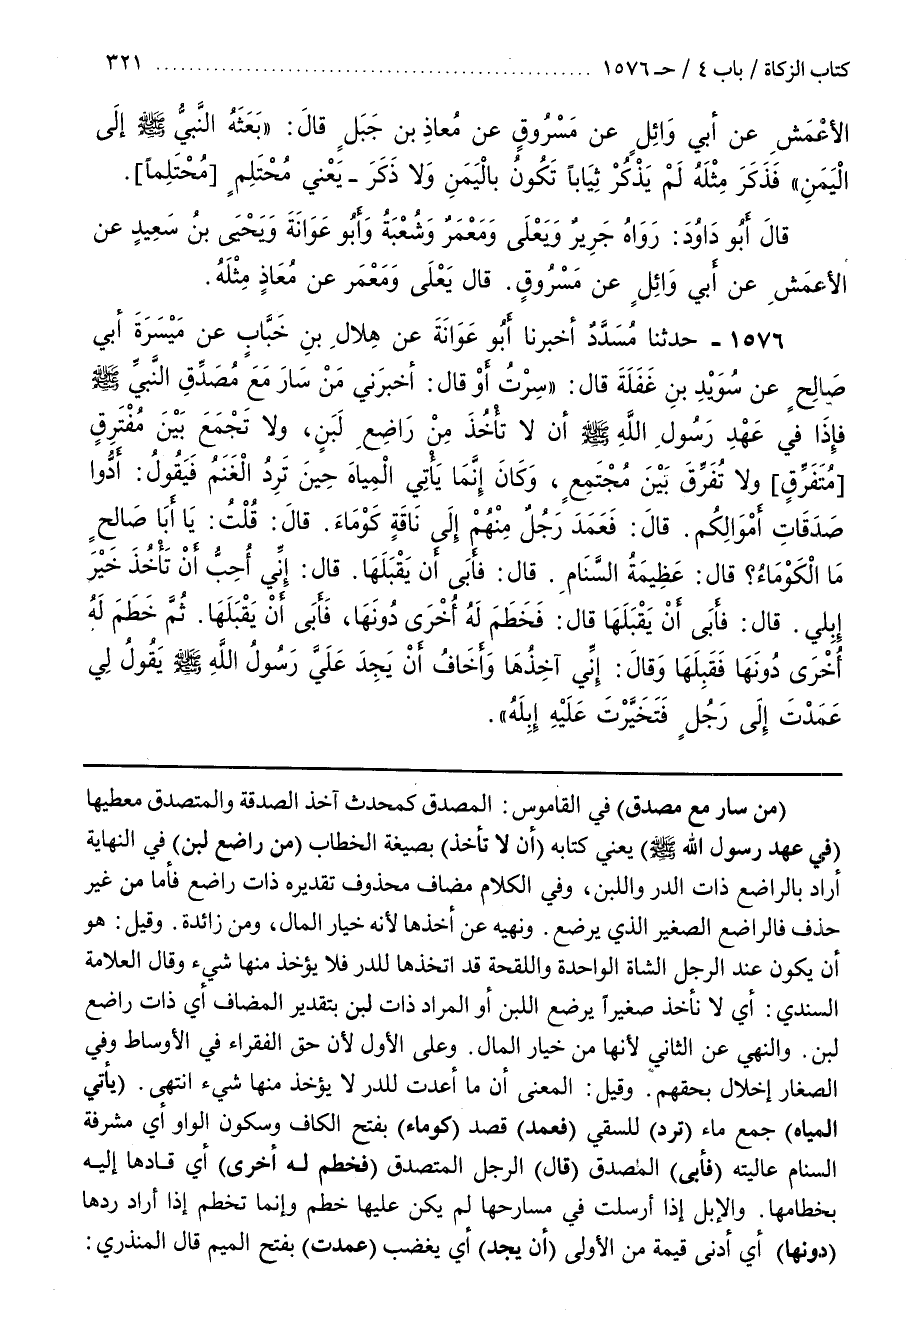 كتاب الزكاة / باب ٤ / حـ ١٥٧٦ ................................................ ٣٢١
الأعْمَشِ عن أبي وَائِلٍ عن مَسْرُوقٍ عن مُعاذِ بن جَبَلٍ قالَ: «بَعَثَهُ النَّبيُّ ﷺ إلَى
الْيَمَنِ» فَذَكَرَ مِثْلَهُ لَمْ يَذْكُرْ ثِيَاباً تَكُونُ بالْيَمَنِ وَلا ذَكَرَ ـ يَعْني مُحْتَلِمٍ [مُحْتَلِماً].
قالَ أَبُو دَاوُدَ: رَوَاهُ جَرِيرٌ وَيَعْلَى وَمَعْمَرٌ وَشُعْبَةُ وَأَبُو عَوَانَةَ وَيَحْيَى بنُ سَعِيدٍ عن
الأعمَشِ عن أَبي وَائِلٍ عن مَسْرُوقٍ. قال يَعْلَى وَمَعْمَر عن مُعَاذٍ مِثْلَهُ.
١٥٧٦ ـ حدثنا مُسَدَّدٌ أخبرنا أَبُو عَوَانَةَ عن هِلالِ بنِ خَبَّابٍ عن مَيْسَرَةَ أبي
صَالِحٍ عن سُوَيْدِ بنِ غَفَلَةَ قال: «سِرْتُ أَوْ قال: أخبَرَني مَنْ سَارَ مَعَ مُصَدِّقِ النَّبيِّ ﷺ
فإذَا في عَهْدِ رَسُولِ اللَّهِ ﷺ أن لا تَأْخُذَ مِنْ رَاضِعِ لَبَنٍ، ولا تَجْمَعَ بَيْنَ مُفْتَرِقٍ
[مُتَفَرِّقٍ] ولا تُفَرِّقَ بَيْنَ مُجْتَمِعٍ، وَكَانَ إِنَّمَا يَأْتي الْمِياهَ حِينَ تَرِدُ الْغَنَمُ فَيَقُولُ: أَدُّوا
صَدَقَاتِ أَمْوَالِكُم. قالَ: فَعَمَدَ رَجُلٌ مِنْهُمْ إِلَى نَاقَةٍ كَوْمَاءَ. قالَ: قُلْتُ: يَا أَبَا صَالحٍ
مَا الْكَوْمَاءُ؟ قال: عَظِيمَةُ السَّنَامِ. قال: فأَبَى أن يَقْبَلَهَا. قال: إنِّي أُحِبُّ أَنْ تَأْخُذَ خَيْرَ
إِبِلي. قال: فأَبَى أَنْ يَقْبَلَهَا قال: فَخَطَمَ لَهُ أُخْرَى دُونَهَا، فَأَبَى أَنْ يَقْبَلَهَا. ثُمَّ خَطَمَ لَهُ
أُخْرَى دُونَهَا فَقَبِلَهَا وَقالَ: إِنِّي آخِذُهَا وَأَخَافُ أَنْ يَجِدَ عَلَيَّ رَسُولُ اللَّهِ ﷺ يَقُولُ لِي
عَمَدْتَ إِلَى رَجُلٍ فَتَخَيَّرْتَ عَلَيْهِ إِبِلَهُ».
(من سار مع مصدق) في القاموس: المصدق كمحدث آخذ الصدقة والمتصدق معطيها
(في عهد رسول الله ﷺ) يعني كتابه (أن لا تأخذ) بصيغة الخطاب (من راضع لبن) في النهاية
أراد بالراضع ذات الدر واللبن، وفي الكلام مضاف محذوف تقديره ذات راضع فأما من غير
حذف فالراضع الصغير الذي يرضع. ونهيه عن أخذها لأنه خيار المال، ومن زائدة. وقيل: هو
أن يكون عند الرجل الشاة الواحدة واللقحة قد اتخذها للدر فلا يؤخذ منها شيء وقال العلامة
السندي: أي لا نأخذ صغيراً يرضع اللبن أو المراد ذات لبن بتقدير المضاف أي ذات راضع
لبن. والنهي عن الثاني لأنها من خيار المال. وعلى الأول لأن حق الفقراء في الأوساط وفي
الصغار إخلال بحقهم. وقيل: المعنى أن ما أعدت للدر لا يؤخذ منها شيء انتهى. (يأتي
المياه) جمع ماء (ترد) للسقي (فعمد) قصد (كوماء) بفتح الكاف وسكون الواو أي مشرفة
السنام عاليته (فأبى) المُصدق (قال) الرجل المتصدق (فخطم له أخرى) أي قادها إليه
بخطامها. والإبل إذا أرسلت في مسارحها لم يكن عليها خطم وإنما تخطم إذا أراد ردها
(دونها) أي أدنى قيمة من الأولى (أن يجد) أي يغضب (عمدت) بفتح الميم قال المنذري: